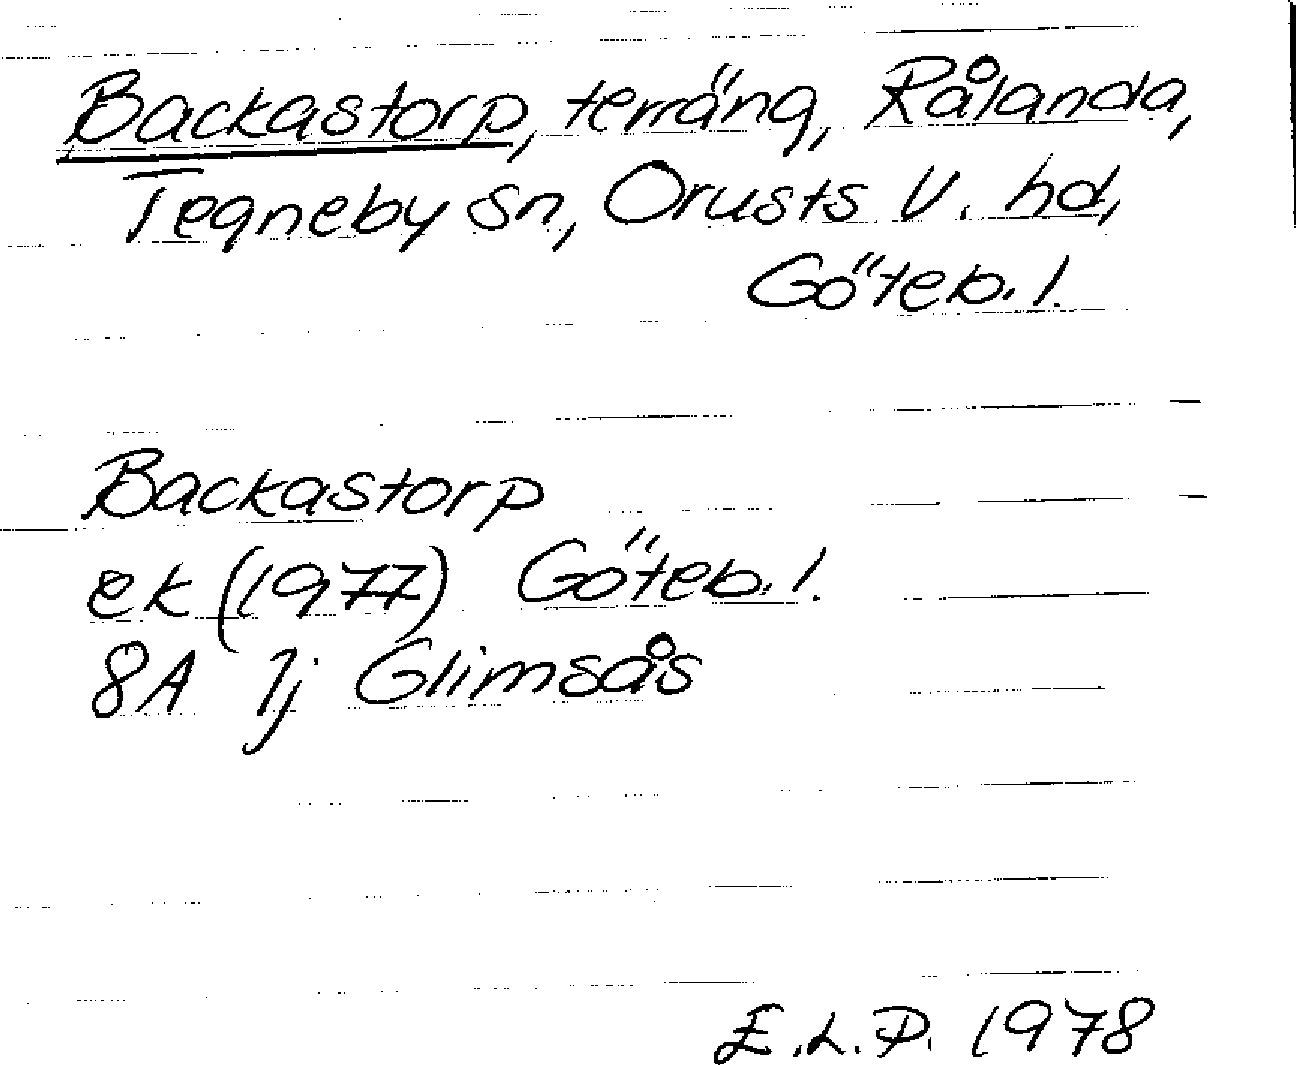 Backastorp, terräng, Rålanda,
Tegneby sn, Orusts V. hd,
Göteb. l.
Backastorp
ek (1977) Göteb. l.
8A 1j Glimsås
E.L.P. 1978